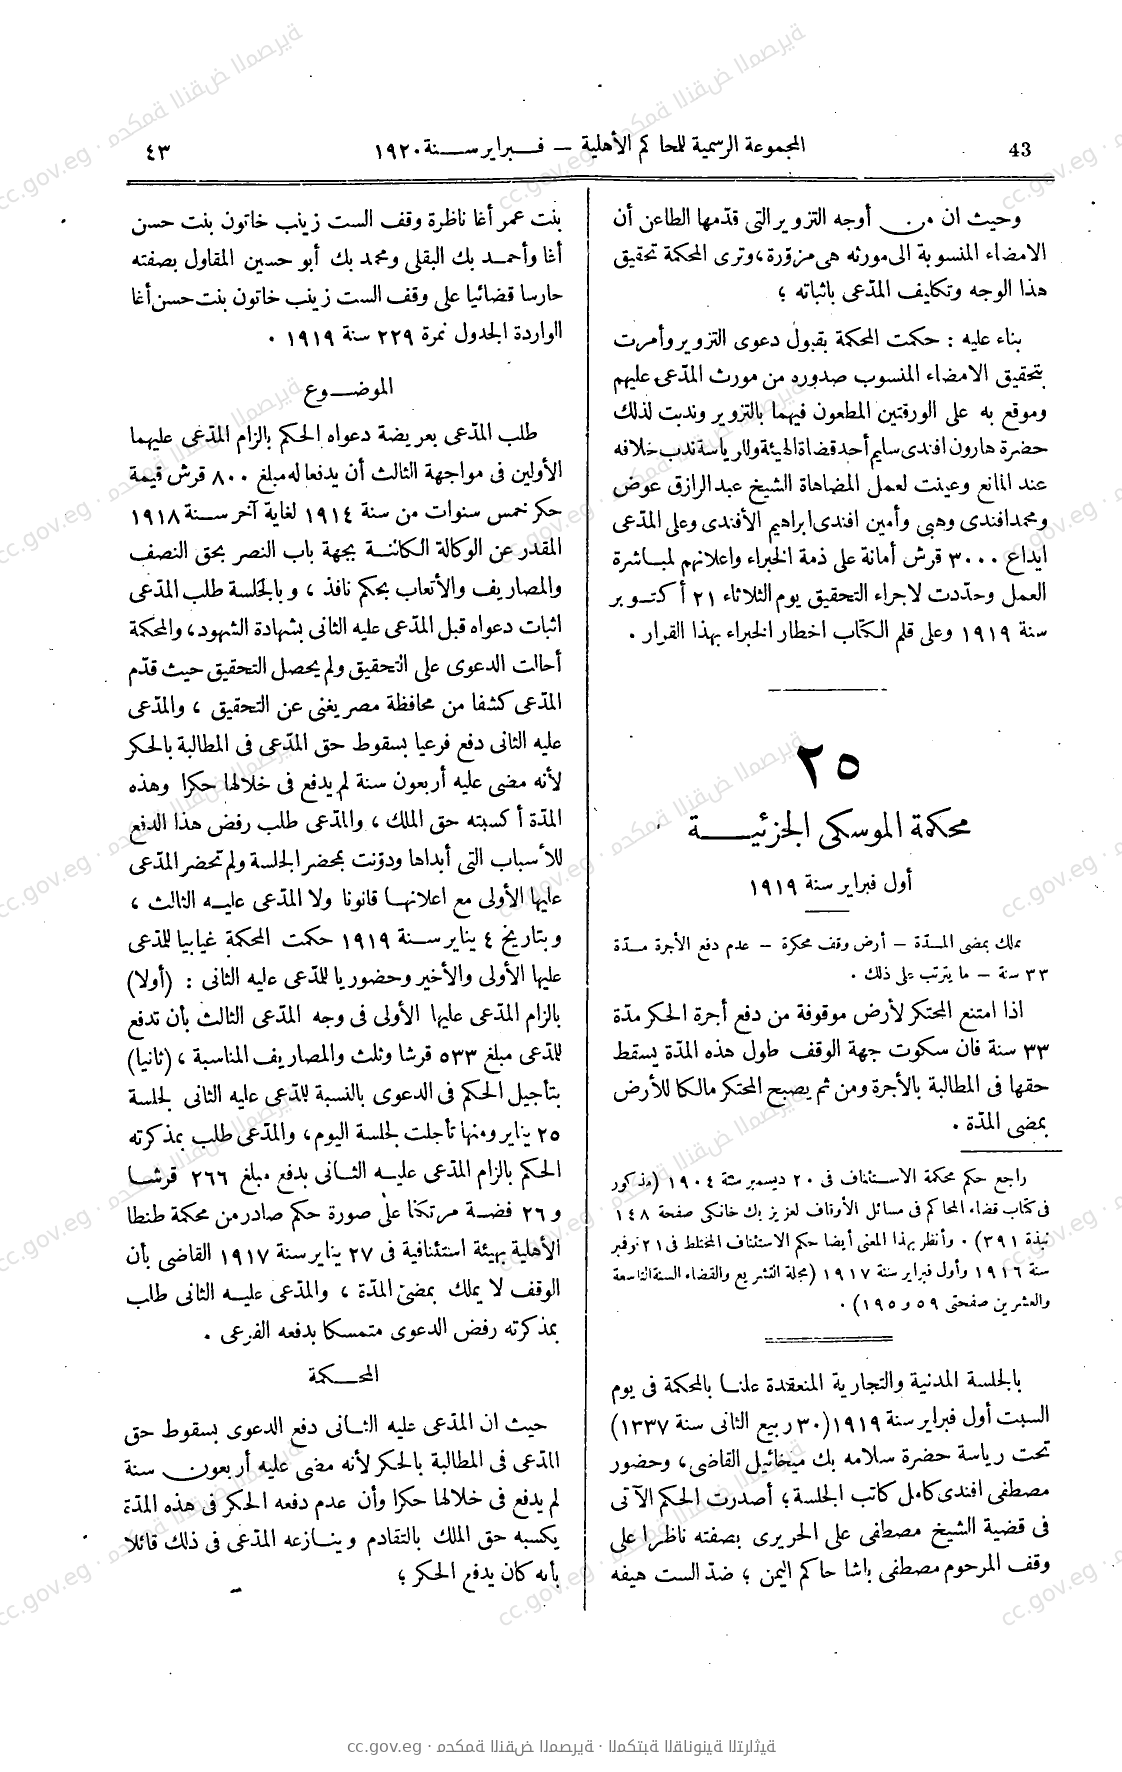 43
المجموعة الرسمية للمحاكم الأهلية — فبراير سنة ١٩٢٠
٤٣
وحيث ان من أوجه التزوير التى قدّمها الطاعن أن
الامضاء المنسوبة الى مورثه هى مزوّرة، وترى المحكمة تحقيق
هذا الوجه وتكليف المدّعى باثباته ؛
بناء عليه : حكمت المحكمة بقبول دعوى التزوير وأمرت
بتحقيق الامضاء المنسوب صدوره من مورث المدّعى عليهم
وموقع به على الورقتين المطعون فيهما بالتزوير وندبت لذلك
حضرة هارون افندى سليم أحد قضاة الهيئة وللرياسة ندب خلافه
عند المانع وعينت لعمل المضاهاة الشيخ عبد الرازق عوض
ومحمد افندى وهبى وأمين افندى ابراهيم الأفندى وعلى المدّعى
ايداع ٣٠٠٠ قرش أمانة على ذمة الخبراء واعلانهم لمباشرة
العمل وحدّدت لاجراء التحقيق يوم الثلاثاء ٢١ أكتوبر
سنة ١٩١٩ وعلى قلم الكتّاب اخطار الخبراء بهذا القرار .
٢٥
محكمة الموسكى الجزئية
أول فبراير سنة ١٩١٩
تملك بمضى المدّة — أرض وقف محكرة — عدم دفع الأجرة مدّة
٣٣ سنة — ما يترتب على ذلك .
اذا امتنع المحتكر لأرض موقوفة من دفع أجرة الحكر مدّة
٣٣ سنة فان سكوت جهة الوقف طول هذه المدّة يسقط
حقها فى المطالبة بالأجرة ومن ثم يصبح المحتكر مالكا للأرض
بمضى المدّة .
راجع حكم محكمة الاستئناف فى ٢٠ ديسمبر سنة ١٩٠٤ (مذكور
فى كتاب قضاء المحاكم فى مسائل الأوقاف لعزيز بك خانكى صفحة ١٤٨
نبذة ٣٩١) . وأنظر بهذا المعنى أيضا حكم الاستئناف المختلط فى ٢١ نوفمبر
سنة ١٩١٦ وأول فبراير سنة ١٩١٧ (مجلة التشريع والقضاء السنة التاسعة
والعشرين صفحتى ٥٩ و ١٩٥) .
بالجلسة المدنية والتجارية المنعقدة علنا بالمحكمة فى يوم
السبت أول فبراير سنة ١٩١٩ (٣٠ ربيع الثانى سنة ١٣٣٧)
تحت رياسة حضرة سلامه بك ميخائيل القاضى، وحضور
مصطفى افندى كامل كاتب الجلسة ؛ أصدرت الحكم الآتى
فى قضية الشيخ مصطفى على الحريرى بصفته ناظرا على
وقف المرحوم مصطفى باشا حاكم اليمن ؛ ضدّ الست هيفه
بنت عمر أغا ناظرة وقف الست زينب خاتون بنت حسن
أغا وأحمد بك البقلى ومحمد بك أبو حسين المقاول بصفته
حارسا قضائيا على وقف الست زينب خاتون بنت حسن أغا
الواردة الجدول نمرة ٢٢٩ سنة ١٩١٩ .
الموضوع
طلب المدّعى بعريضة دعواه الحكم بالزام المدّعى عليهما
الأولين فى مواجهة الثالث أن يدفعا له مبلغ ٨٠٠ قرش قيمة
حكر خمس سنوات من سنة ١٩١٤ لغاية آخر سنة ١٩١٨
المقدر عن الوكالة الكائنة بجهة باب النصر بحق النصف
والمصاريف والأتعاب بحكم نافذ ، وبالجلسة طلب المدّعى
اثبات دعواه قبل المدّعى عليه الثانى بشهادة الشهود، والمحكمة
أحالت الدعوى على التحقيق ولم يحصل التحقيق حيث قدّم
المدّعى كشفا من محافظة مصر يغنى عن التحقيق ، والمدّعى
عليه الثانى دفع فرعيا بسقوط حق المدّعى فى المطالبة بالحكر
لأنه مضى عليه أربعون سنة لم يدفع فى خلالها حكرا وهذه
المدّة أكسبته حق الملك ، والمدّعى طلب رفض هذا الدفع
للأسباب التى أبداها ودوّنت بمحضر الجلسة ولم تحضر المدّعى
عليها الأولى مع اعلانها قانونا ولا المدّعى عليه الثالث ،
وبتاريخ ٤ يناير سنة ١٩١٩ حكمت المحكمة غيابيا للمدّعى
عليها الأولى والأخير وحضوريا للمدّعى عليه الثانى : (أولا)
بالزام المدّعى عليها الأولى فى وجه المدّعى الثالث بأن تدفع
للمدّعى مبلغ ٥٣٣ قرشا وثلث والمصاريف المناسبة ، (ثانيا)
بتأجيل الحكم فى الدعوى بالنسبة للمدّعى عليه الثانى لجلسة
٢٥ يناير ومنها تأجلت لجلسة اليوم، والمدّعى طلب بمذكرته
الحكم بالزام المدّعى عليه الثانى بدفع مبلغ ٢٦٦ قرشا
و ٢٦ فضة مرتكنا على صورة حكم صادر من محكمة طنطا
الأهلية بهيئة استئنافية فى ٢٧ يناير سنة ١٩١٧ القاضى بأن
الوقف لا يملك بمضىّ المدّة ، والمدّعى عليه الثانى طلب
بمذكرته رفض الدعوى متمسكا بدفعه الفرعى .
المحكمة
حيث ان المدّعى عليه الثانى دفع الدعوى بسقوط حق
المدّعى فى المطالبة بالحكر لأنه مضى عليه أربعون سنة
لم يدفع فى خلالها حكرا وأن عدم دفعه الحكر فى هذه المدّة
يكسبه حق الملك بالتقادم وينازعه المدّعى فى ذلك قائلا
بأنه كان يدفع الحكر ؛
cc.gov.eg · محكمة النقض المصرية · المكتبة القانونية التراثية